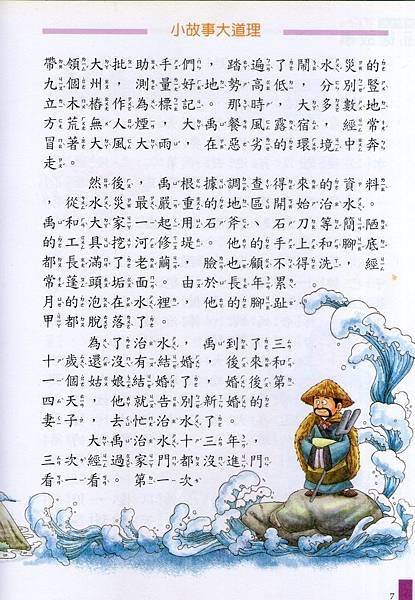 小故事大道理
帶領大批助手們，踏遍了鬧水災的
九個州，測量好地勢高低，分別豎
立木樁作為標記。那時，大多數地
方荒無人煙，大禹餐風露宿，經常
冒著大風大雨，在惡劣的環境中奔
走。
然後，禹根據調查得來的資料
，從水災最嚴重的地區開始治水。
禹和大家一起用石斧、石刀等簡陋
的工具挖河修堤。他的手上和腳底
都長滿了老繭，臉也顧不得洗，經
常蓬頭垢面。由於長年累
月的泡在水裡，他的腳趾
甲都脫落了。
為了治水，禹到了三
十歲還沒有結婚，後來和
一個姑娘結婚了，婚後第
四天，他就告別新婚的
妻子，去忙治水了。
大禹治水十三年，
三次經過家門都沒進門
看一看。第一次
7